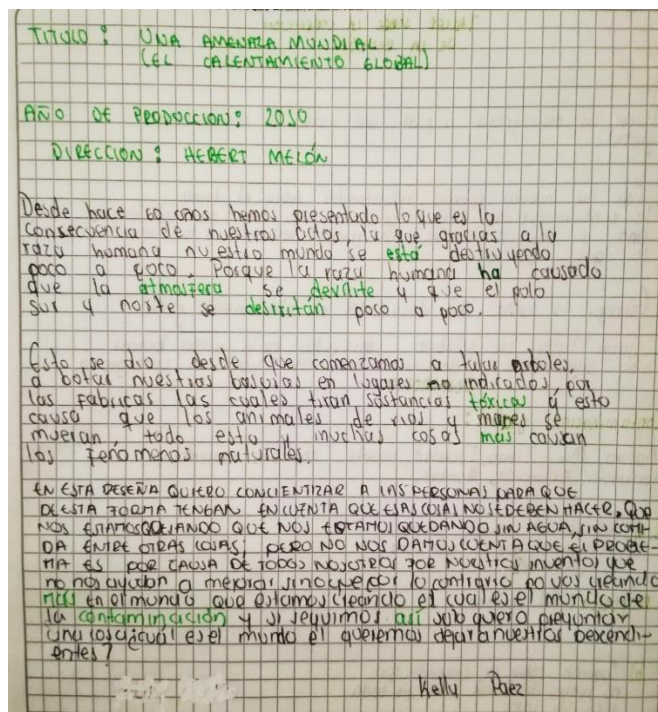 TITULO: UNA AMENAZA MUNDIAL
(EL CALENTAMIENTO GLOBAL)
AÑO DE PRODUCCION: 2010
DIRECCION: HEBERT MELÓN
Desde hace 60 años hemos presentado lo que es la
consecuencia de nuestros actos, la que gracias a la
raza humana nuestro mundo se está destruyendo
poco a poco. Porque la raza humana ha causado
que la atmosfera se devilite y que el polo
sur y norte se desirritán poco a poco.
Esto se dio desde que comenzamos a talar arboles,
a botar nuestras basuras en lugares no indicados, por
las fabricas las cuales tiran sustancias tóxicas y esto
causa que los animales de rios y mares se
mueran, todo esto y muchas cosas más causan
los fenomenos naturales.
EN ESTA RESEÑA QUIERO CONCIENTIZAR A LAS PERSONAS PARA QUE
DE ESTA FORMA TENGAN EN CUENTA QUE ESAS COSAS NO SE DEBEN HACER, QUE
NOS ESTAMOS QUEJANDO QUE NOS ESTAMOS QUEDANDO SIN AGUA, SIN COMI-
DA ENTRE OTRAS COSAS, PERO NO NOS DAMOS CUENTA QUE EL PROBLE-
MA ES POR CAUSA DE TODOS NOSOTROS POR NUESTROS inventos que
no nos ayudan a mejorar sino que por lo contrario no vas creando
más en el mundo que estamos creando el cual es el mundo de
la contaminación y si seguimos así solo quero preguntar
una cosa ¿cual es el mundo el queremos dejar a nuestros descendi-
entes?
Kelly Paez